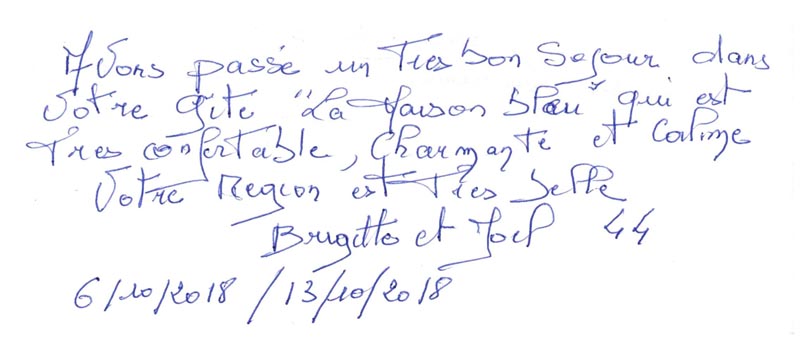 Avons passé un Tres bon Sejour dans
Votre Gîte "La Maison bleu" qui est
Tres confortable, Charmante et Calme
Votre Region est Très belle
Brigitte et Joel 44
6/10/2018 / 13/10/2018